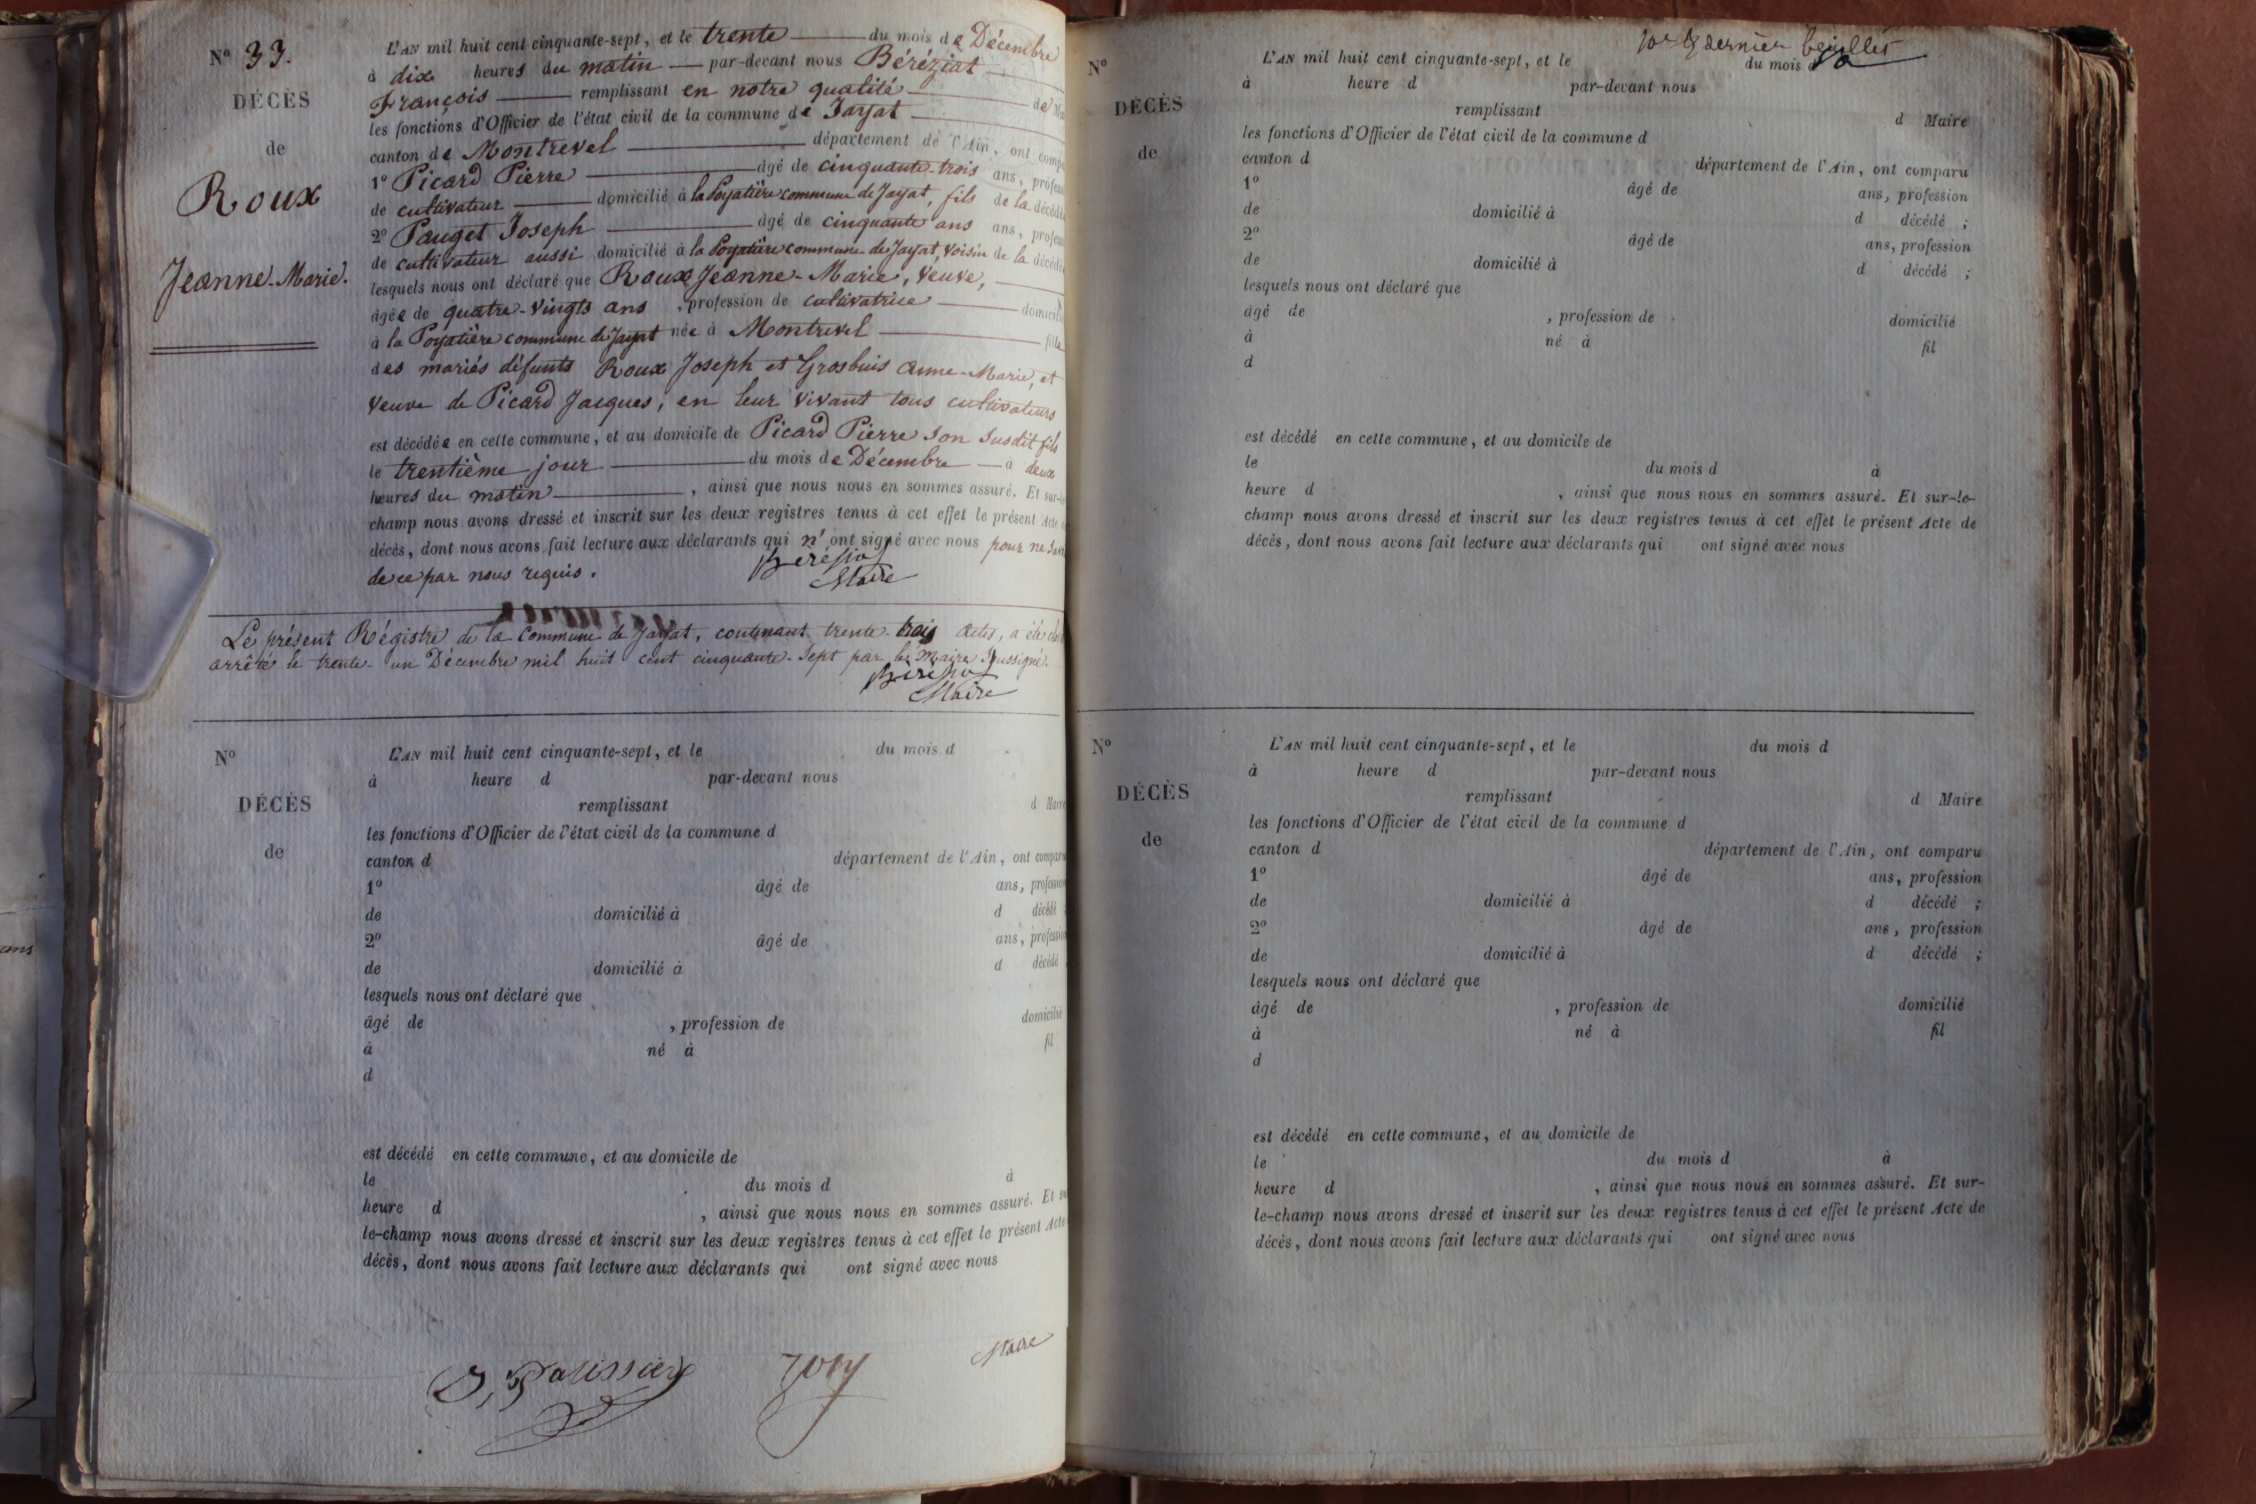 Nº 33.
DÉCÈS
de
Roux
Jeanne-Marie.
L'AN mil huit cent cinquante-sept, et le trente du mois de Décembre
à dix heures du matin par-devant nous Béréziat
François remplissant en notre qualité de
les fonctions d'Officier de l'état civil de la commune de Jayat
canton de Montrevel département de l'Ain, ont
1º Picard Pierre âgé de cinquante-trois ans,
de cultivateur domicilié à la Poyatière commune de Jayat, fils de la
2º Pauget Joseph âgé de cinquante ans ans,
de cultivateur aussi domicilié à la Poyatière commune de Jayat, voisin de la
lesquels nous ont déclaré que Roux Jeanne-Marie, veuve,
âgée de quatre-vingts ans, profession de cultivatrice
à la Poyatière commune de Jayat née à Montrevel fille
des mariés défunts Roux Joseph et Grosbuis anne-Marie, et
veuve de Picard Jacques, en leur vivant tous cultivateurs
est décédée en cette commune, et au domicile de Picard Pierre son susdit fils
le trentième jour du mois de Décembre à deux
heures du matin, ainsi que nous nous en sommes assuré. Et
champ nous avons dressé et inscrit sur les deux registres tenus à cet effet le présent Acte
décès, dont nous avons fait lecture aux déclarants qui n'ont signé avec nous pour ne
de ce par nous requis.
Maire
Le présent Régistre de la Commune de Jayat, contenant trente-trois actes, a été
arrêté le trente-un Décembre mil huit cent cinquante-sept par le Maire soussigné.
Maire
Nº
DÉCÈS
de
L'AN mil huit cent cinquante-sept, et le du mois d
à heure d par-devant nous
remplissant d Maire
les fonctions d'Officier de l'état civil de la commune d
canton d département de l'Ain, ont comparu
1º âgé de ans, profession
de domicilié à d décédé ;
2º âgé de ans, profession
de domicilié à d décédé
lesquels nous ont déclaré que
âgé de , profession de domicilié
à né à fil
d
est décédé en cette commune, et au domicile de
le du mois d à
heure d , ainsi que nous nous en sommes assuré. Et
le-champ nous avons dressé et inscrit sur les deux registres tenus à cet effet le présent Acte
décès, dont nous avons fait lecture aux déclarants qui ont signé avec nous
Maire
dernier
Nº
DÉCÈS
de
L'AN mil huit cent cinquante-sept, et le du mois d
à heure d par-devant nous
remplissant d Maire
les fonctions d'Officier de l'état civil de la commune d
canton d département de l'Ain, ont comparu
1º âgé de ans, profession
de domicilié à d décédé ;
2º âgé de ans, profession
de domicilié à d décédé ;
lesquels nous ont déclaré que
âgé de , profession de domicilié
à né à fil
d
est décédé en cette commune, et au domicile de
le du mois d à
heure d , ainsi que nous nous en sommes assuré. Et sur-le-
champ nous avons dressé et inscrit sur les deux registres tenus à cet effet le présent Acte de
décès, dont nous avons fait lecture aux déclarants qui ont signé avec nous
Nº
DÉCÈS
de
L'AN mil huit cent cinquante-sept, et le du mois d
à heure d par-devant nous
remplissant d Maire
les fonctions d'Officier de l'état civil de la commune d
canton d département de l'Ain, ont comparu
1º âgé de ans, profession
de domicilié à d décédé ;
2º âgé de ans, profession
de domicilié à d décédé ;
lesquels nous ont déclaré que
âgé de , profession de domicilié
à né à fil
d
est décédé en cette commune, et au domicile de
le du mois d à
heure d , ainsi que nous nous en sommes assuré. Et sur-
le-champ nous avons dressé et inscrit sur les deux registres tenus à cet effet le présent Acte de
décès, dont nous avons fait lecture aux déclarants qui ont signé avec nous